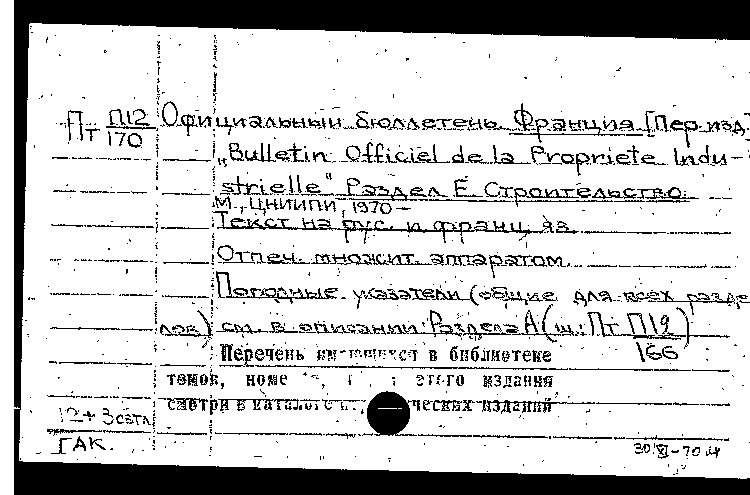 Пт П12/170 Официальный бюллетень Франция [Пер.изд.]
„Bulletin Officiel de la Propriete Indu-
strielle" Раздел Е Строительство.
М., ЦНИИПИ, 1970-
Текст на рус. и франц. яз.
Отпеч. множит. аппаратом.
Погодные указатели (общие для всех разде
лов) см. в описании: Раздела А (ш: Пт П12/166)
Перечень имеющихся в библиотеке
томов, этого издания
смотри в каталоге изданий
12+3
ГАК. 30.XI-70